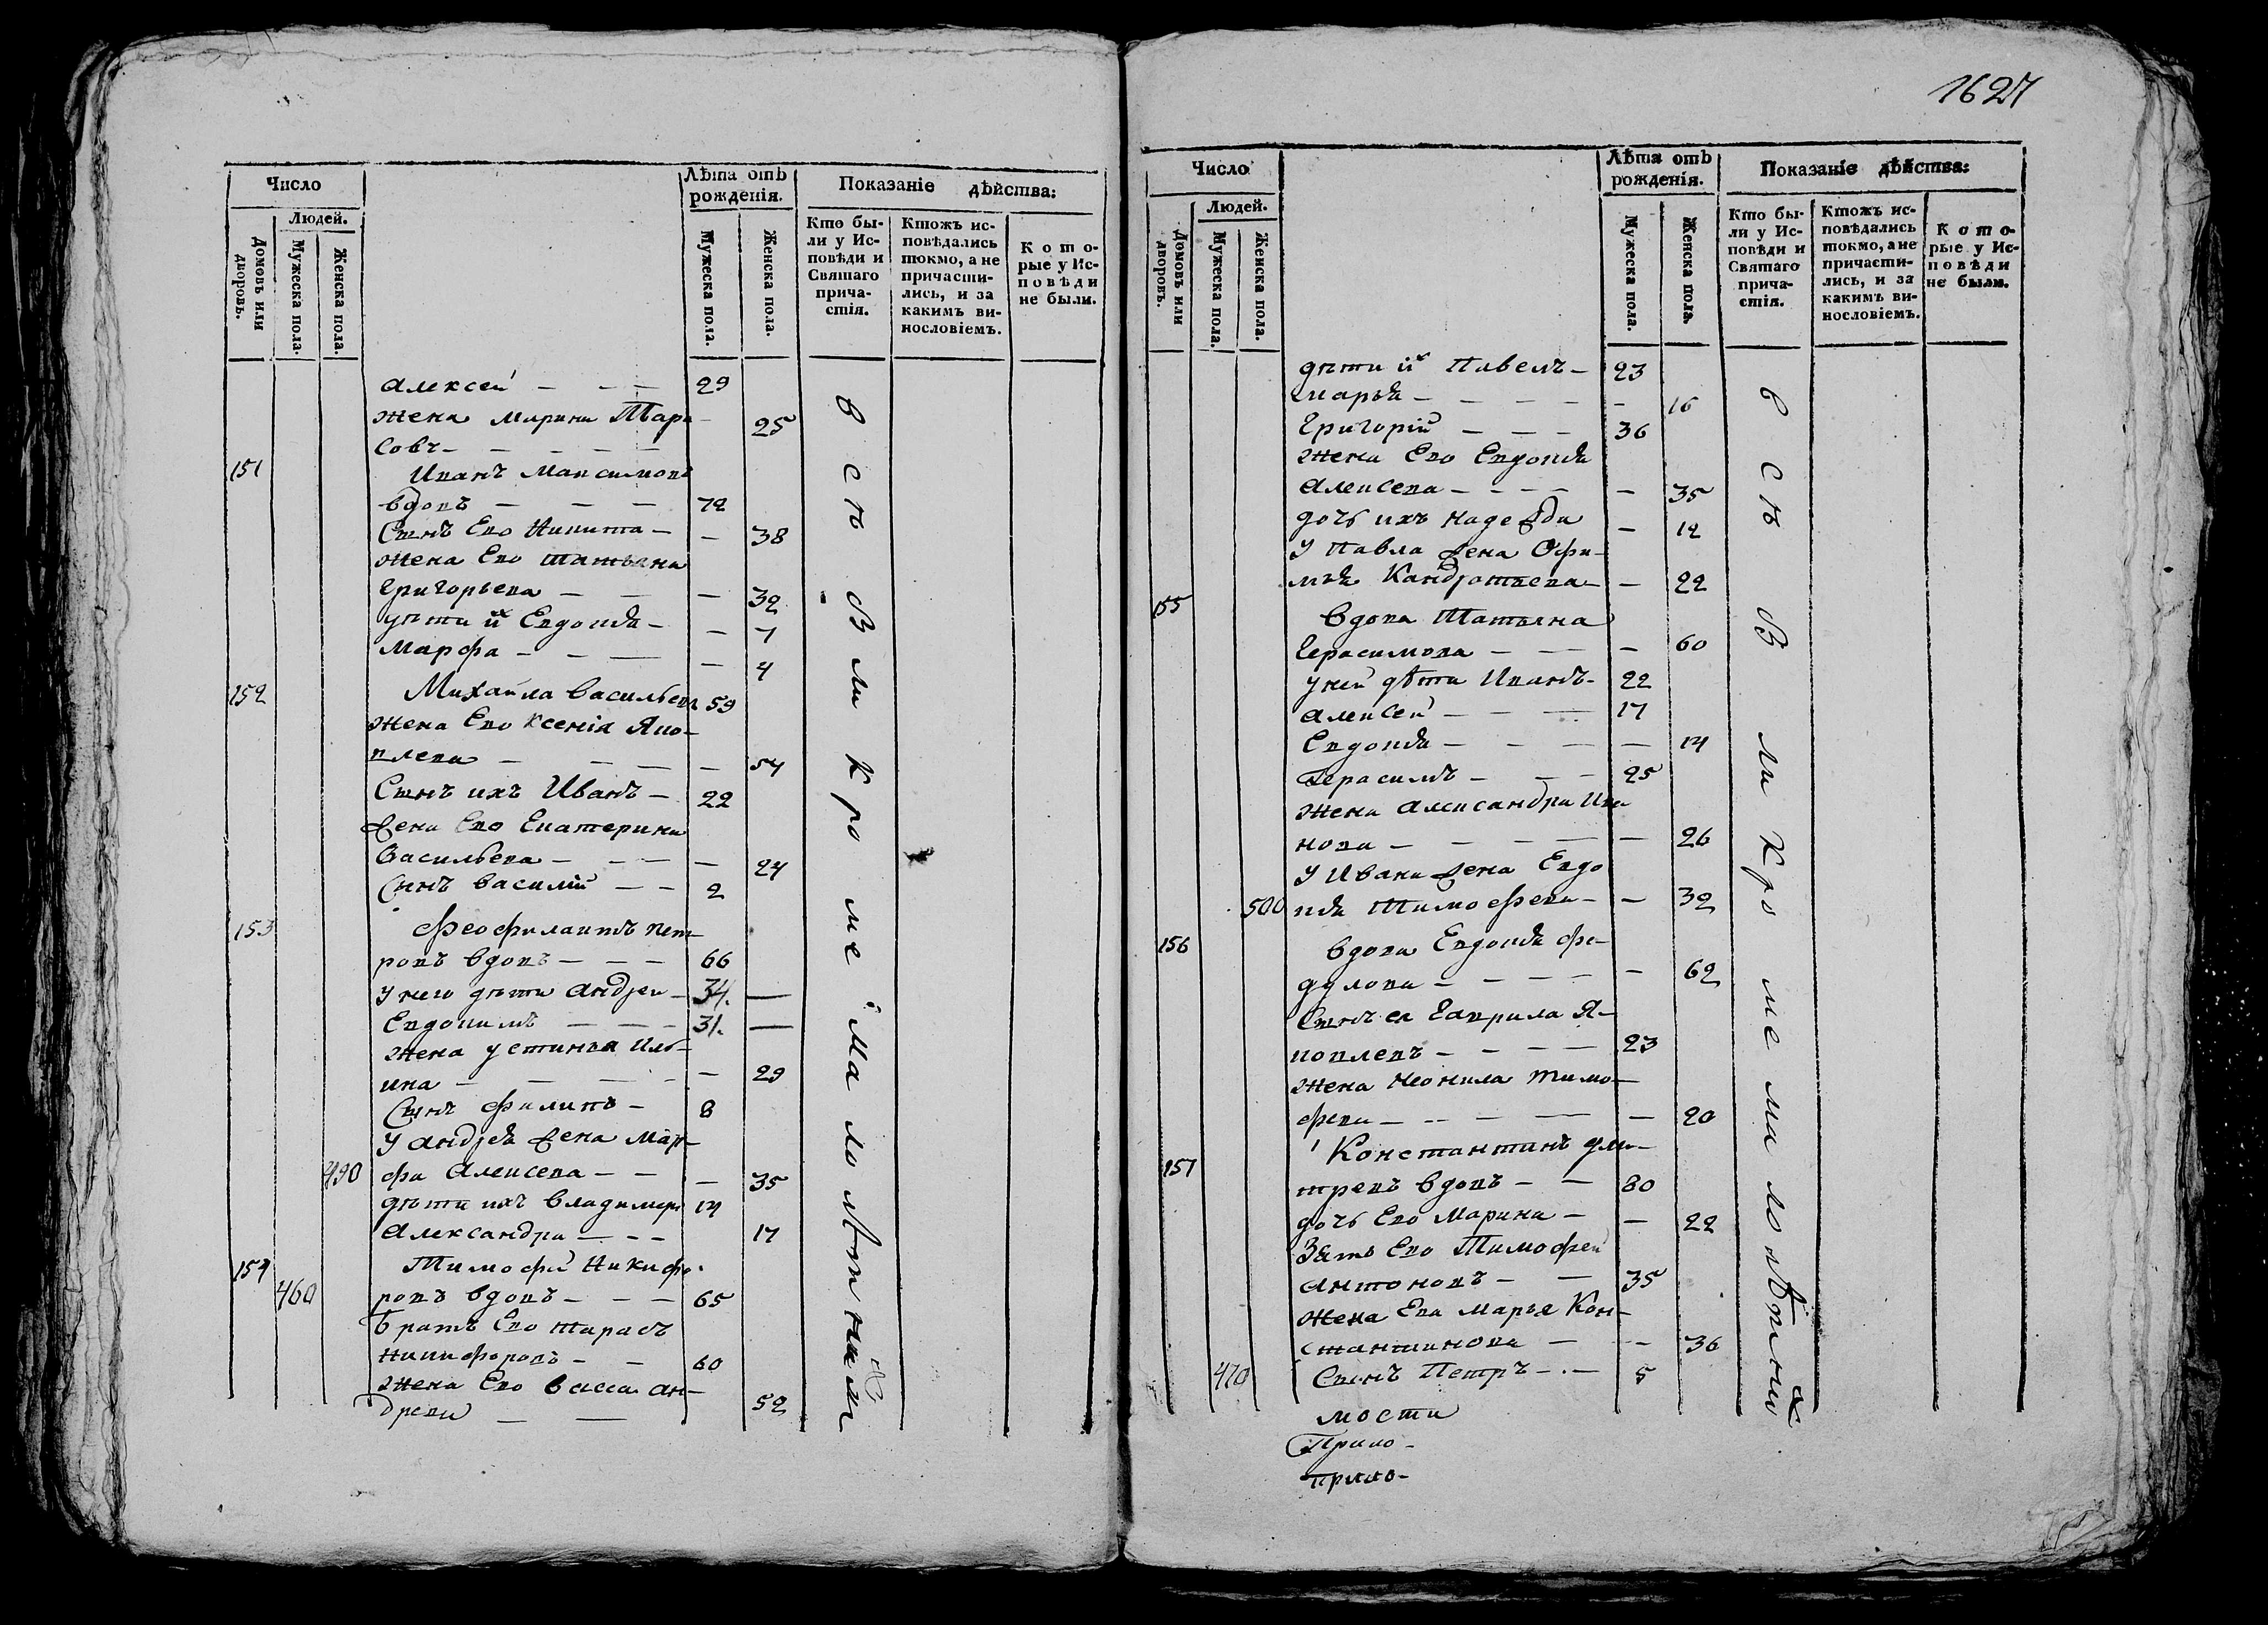 1627
Число
Лѣта отъ рожденія.
Показаніе дѣйства:
Людей.
Домовъ или дворовъ.
Мужеска пола.
Женска пола.
Мужеска пола.
Женска пола.
Кто бы-
ли у Ис-
повѣди и
Святаго
прича-
стія.
Ктожъ ис-
повѣдались
токмо, а не
причасти-
лись, и за
какимъ ви-
нословіемъ.
Кото-
рые у Ис-
повѣди
не были.
Алексей — — — 29
жена Марина Тара- — 25
совъ — — — —
151 Иванъ Максимовъ
вдовъ — — — 72
Сынъ Ево Никита — — 38
жена Ево Татьяна
Григорьева — — — 32
дѣти их Евдокія — — 7
Марфа — — — — 4
152 Михайла Васильевъ 59
жена Ево Ксенія Яко-
влева — — — — 54
Сынъ ихъ Иванъ — 22
жена Ево Екатерина
Васильева — — — — 24
Сынъ Василій — — 2
153 Феофилактъ пет-
ровъ вдовъ — — — 66
У него дѣти Андрей — 34. —
Евдокимъ — — — 31. —
жена устинья Иль-
ина — — — — 29
Сынъ филипъ — 8
У Андрея жена Мар-
490 фа Алексева — — — 35
дѣти ихъ Владимеръ 14
Александра — — — 17
154 Тимофей Никифо-
460 ровъ вдовъ — — — 65
братъ Ево тарасъ
Никифоровъ — — 60
жена Ево васса ан-
древа — — 52
всѣ были кроме малолѣтних
Число
Лѣта отъ рожденія.
Показаніе дѣйства:
Людей.
Домовъ или дворовъ.
Мужеска пола.
Женска пола.
Мужеска пола.
Женска пола.
Кто бы-
ли у Ис-
повѣди и
Святаго
прича-
стія.
Ктожъ ис-
повѣдались
токмо, а не
причасти-
лись, и за
какимъ ви-
нословіемъ.
Кото-
рые у Ис-
повѣди
не были.
дѣти их Павелъ — 23
Марья — — — — — 16
Григорій — — — 36
жена Ево Евдокія
Алексева — — — — — 35
дочь ихъ Надежда — 12
У Павла жена Офи-
мья Кандратьева — — 22
155 вдова Татьяна
Герасимова — — — 60
у ней дѣти Иванъ — 22
Алексей — — — 17
Евдокія — — — — 14
Герасимъ — — — 25
жена Александра Ива-
нова — — — — — 26
У Ивана жена Евдо-
500 кія Тимофеева — — 32
156 вдова Евдокія фе-
дулова — — — — — 62
Сынъ ея Гаврила Я-
ковлевъ — — — — 23
жена Неонила тимо-
феева — — — — — 20
157 Константинъ дми-
тревъ вдовъ — — 80
дочь Ево Марина — — 22
Зять Ево Тимофей
Антоновъ — — 35
жена Ева Марья Кон-
стантинова — — 36
470 Сынъ Петръ — — 5
всѣ были кроме малолѣтних
мости